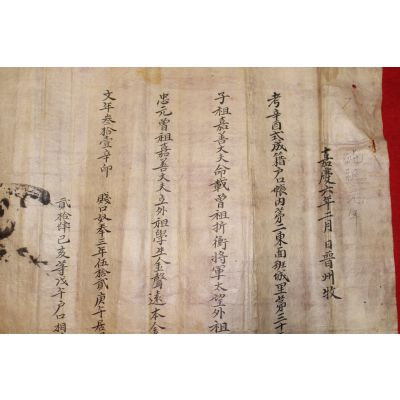 嘉慶六年二月 日晉州牧
考辛酉式成籍户口帳內第二東面班城里第三十
子祖嘉善大夫命載曾祖折衝將軍太望外祖
忠元曾祖嘉善大夫立外祖學生金聲遠本金
文年叁拾壹辛卯 賤口奴奉三年伍拾貳庚午居
貳拾肆己亥等戊午户口相